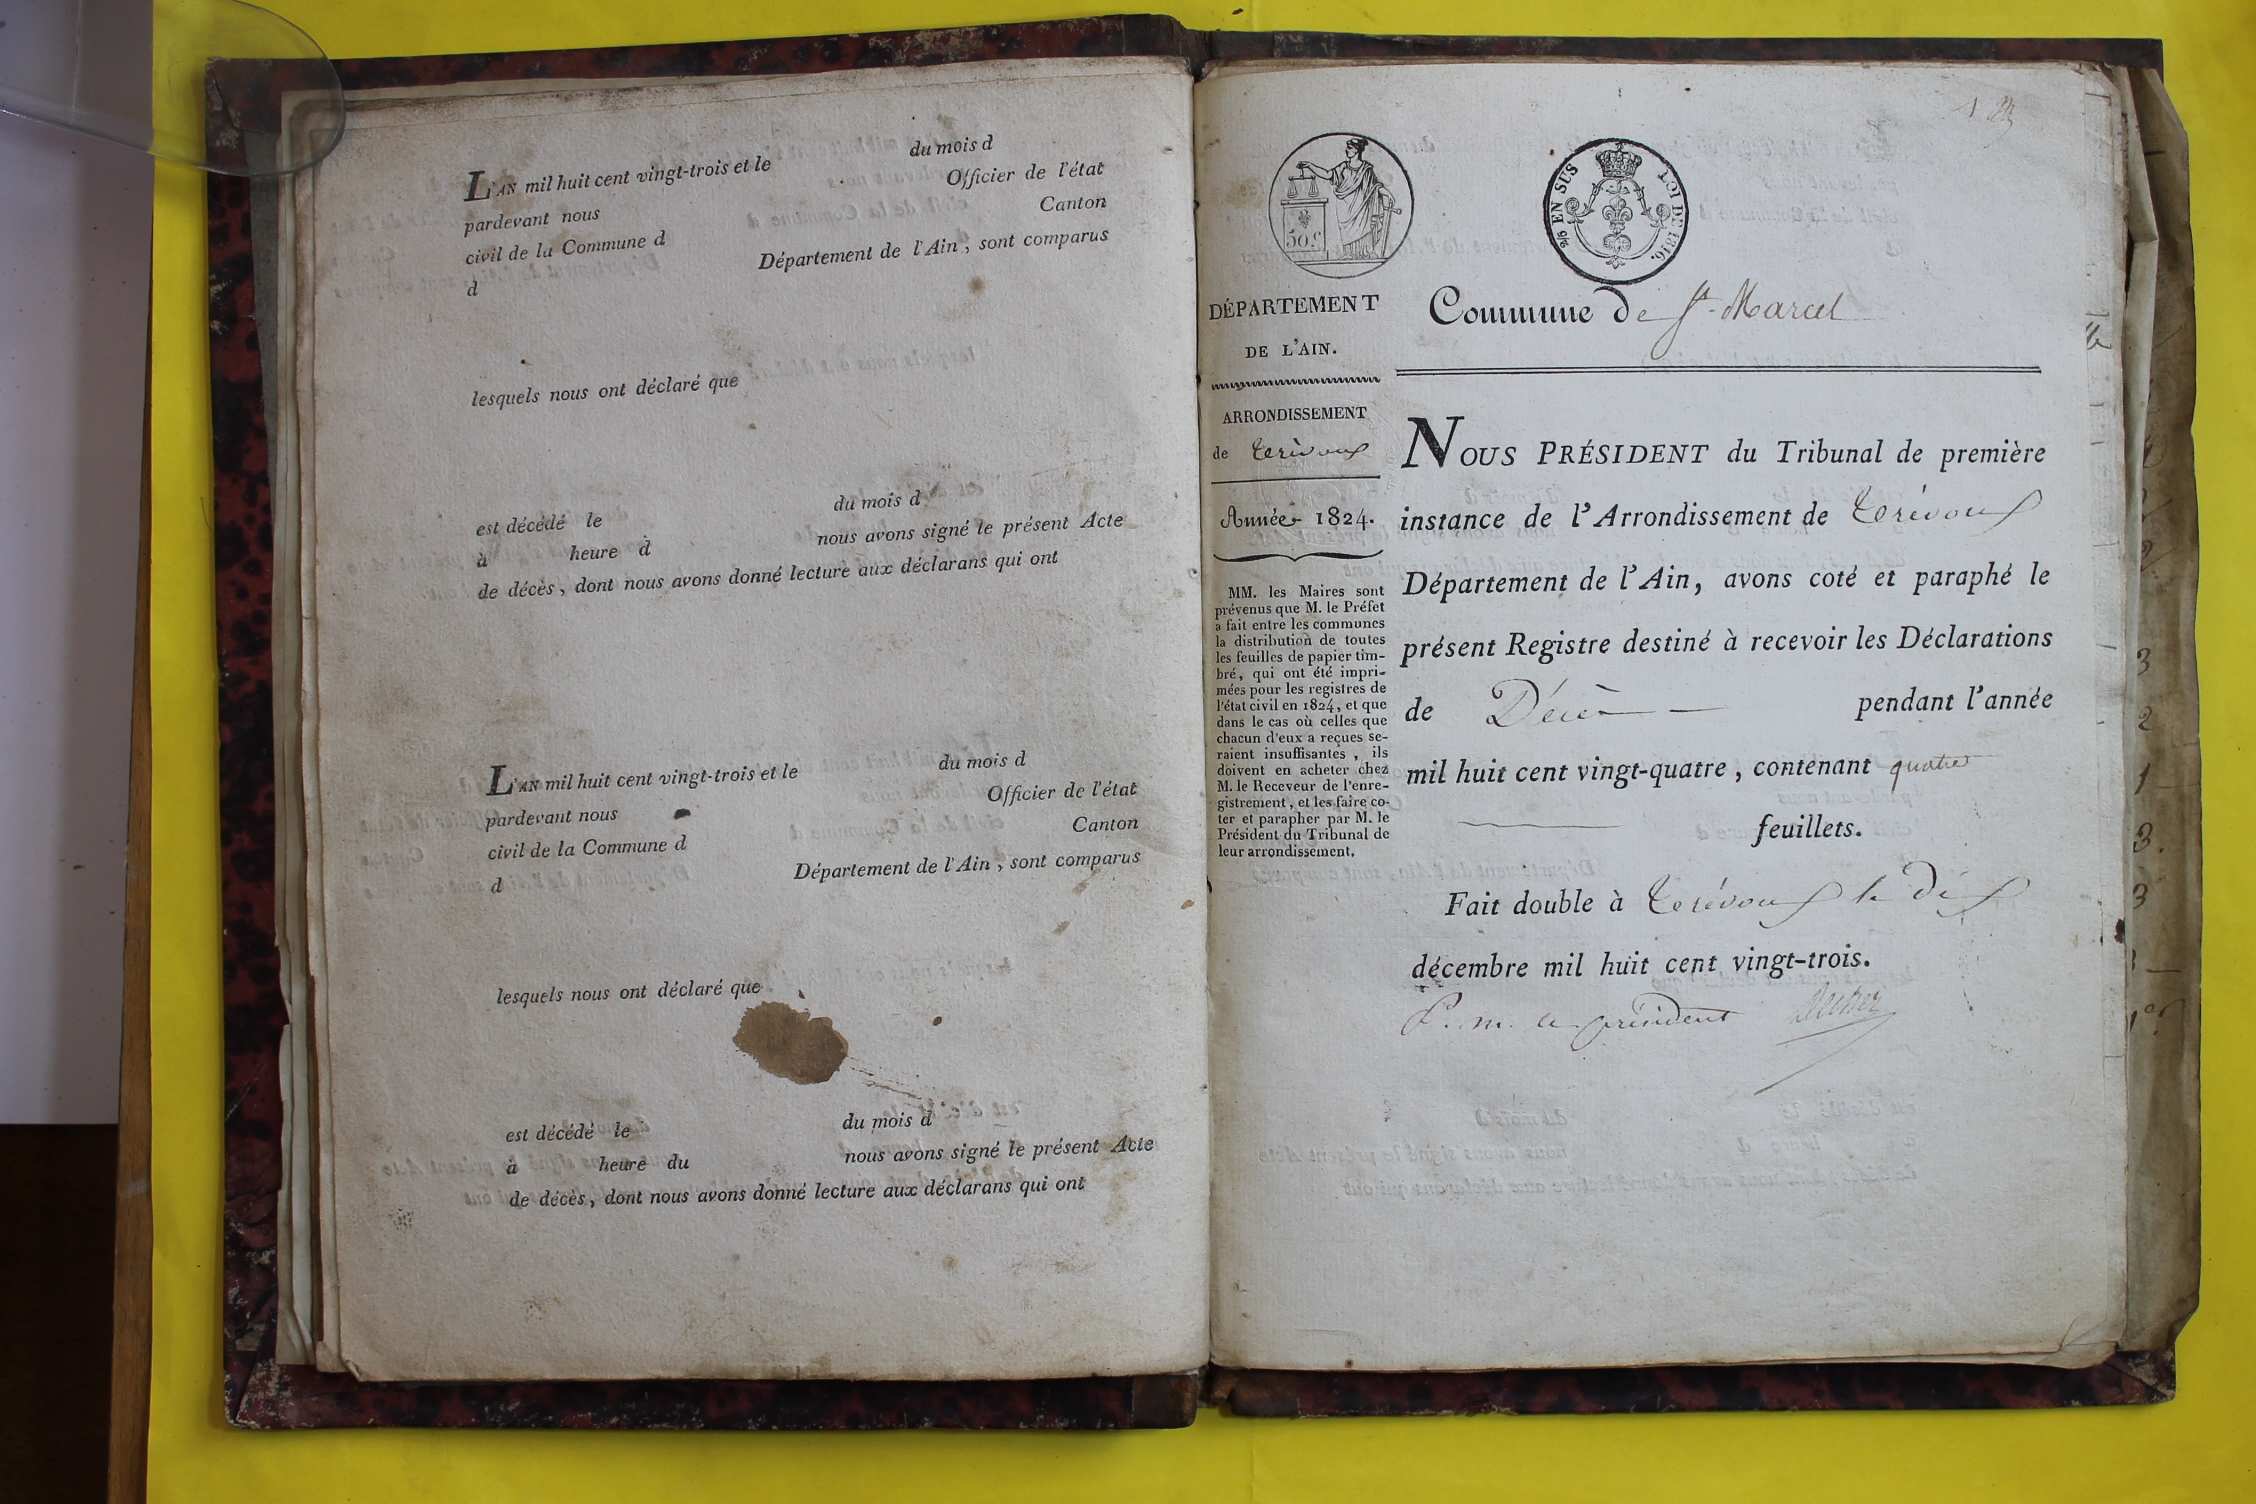 L'AN mil huit cent vingt-trois et le du mois d
pardevant nous Officier de l'état
civil de la Commune d Canton
d Département de l'Ain, sont comparus
lesquels nous ont déclaré que
est décédé le du mois d
à heure d nous avons signé le présent Acte
de décès, dont nous avons donné lecture aux déclarans qui ont
L'AN mil huit cent vingt-trois et le du mois d
pardevant nous Officier de l'état
civil de la Commune d Canton
d Département de l'Ain, sont comparus
lesquels nous ont déclaré que
est décédé le du mois d
à heure du nous avons signé le présent Acte
de décès, dont nous avons donné lecture aux déclarans qui ont
50 c
EN SUS LOI DE 1816.
DÉPARTEMENT
DE L'AIN.
ARRONDISSEMENT
de Trévoux
Année 1824.
MM. les Maires sont
prévenus que M. le Préfet
a fait entre les communes
la distribution de toutes
les feuilles de papier tim-
bré, qui ont été impri-
mées pour les registres de
l'état civil en 1824, et que
dans le cas où celles que
chacun d'eux a reçues se-
raient insuffisantes, ils
doivent en acheter chez
M. le Receveur de l'enre-
gistrement, et les faire co-
ter et parapher par M. le
Président du Tribunal de
leur arrondissement.
Commune de St. Marcel
NOUS PRÉSIDENT du Tribunal de première
instance de l'Arrondissement de Trévoux
Département de l'Ain, avons coté et paraphé le
présent Registre destiné à recevoir les Déclarations
de Décès pendant l'année
mil huit cent vingt-quatre, contenant quatre
feuillets.
Fait double à Trévoux le dix
décembre mil huit cent vingt-trois.
P. m. le président
3
2
1
3.
3